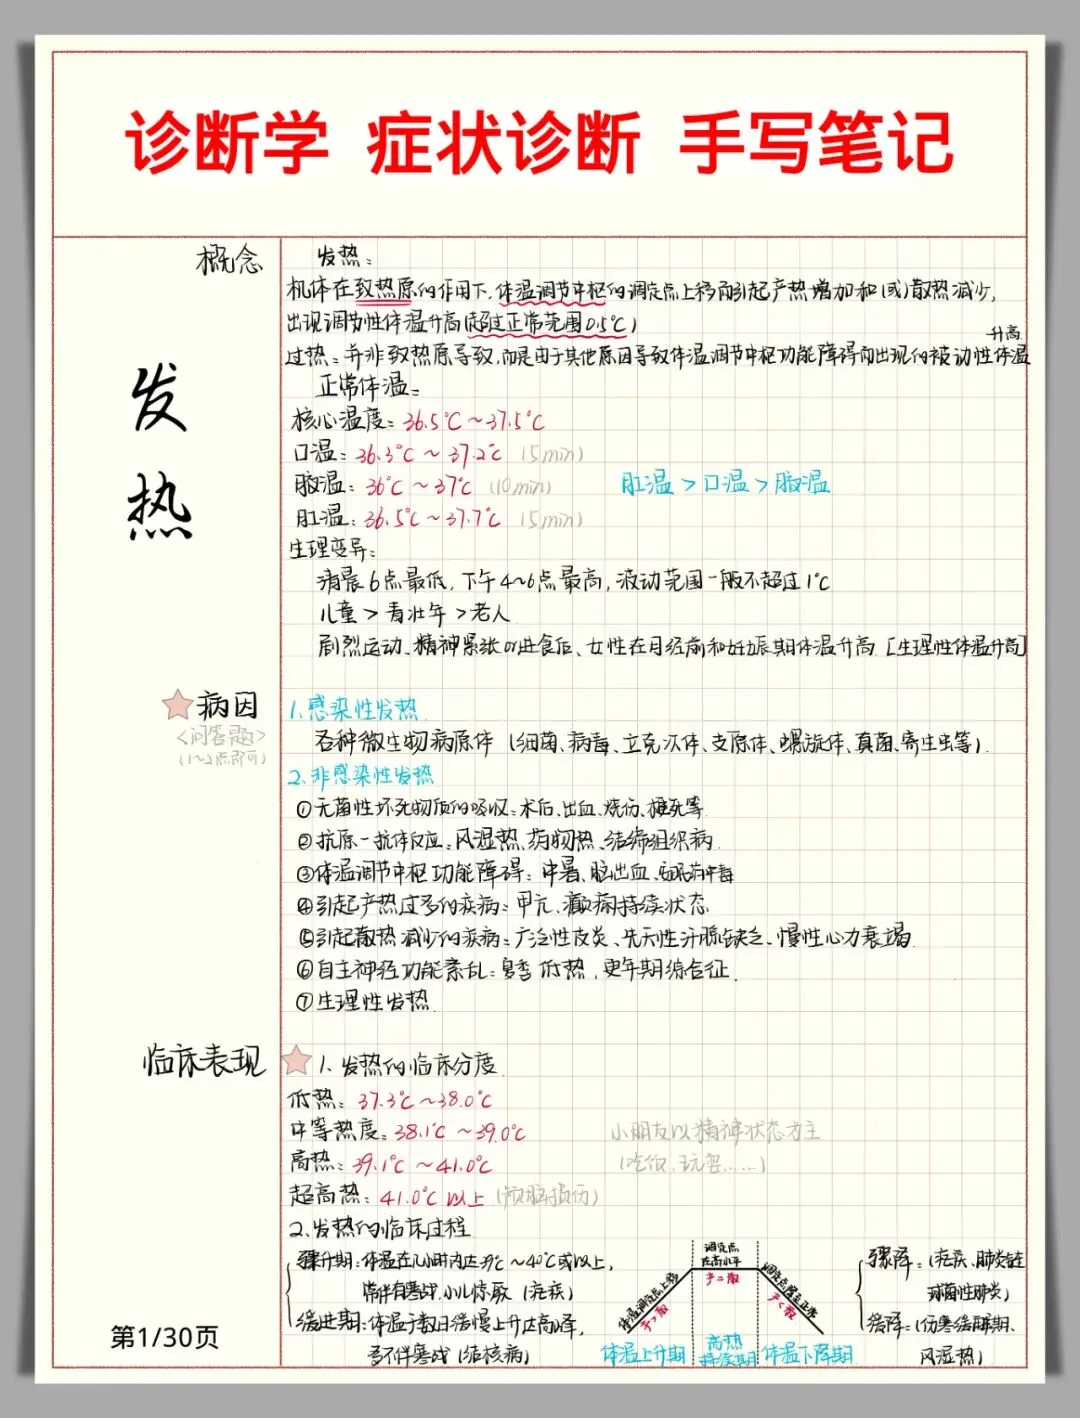 诊断学 症状诊断 手写笔记
发热
概念
发热：
机体在致热原的作用下，体温调节中枢的调定点上移而引起产热增加和(或)散热减少，
出现调节性体温升高(超过正常范围0.5℃)
过热：并非致热原导致，而是由于其他原因导致体温调节中枢功能障碍而出现的被动性体温升高
正常体温：
核心温度：36.5℃～37.5℃
口温：36.3℃～37.2℃ (5min)
腋温：36℃～37℃ (10min)
肛温＞口温＞腋温
肛温：36.5℃～37.7℃ (5min)
生理变异：
清晨6点最低，下午4～6点最高，波动范围一般不超过1℃
儿童＞青壮年＞老人
剧烈运动、精神紧张or进食后、女性在月经前和妊娠期体温升高 [生理性体温升高]
病因
<问答题>
(1～2点即可)
1.感染性发热
各种微生物病原体 (细菌、病毒、立克次体、支原体、螺旋体、真菌、寄生虫等).
2.非感染性发热
①无菌性坏死物质的吸收：术后、出血、烧伤、梗死等
②抗原-抗体反应：风湿热、药物热、结缔组织病.
③体温调节中枢功能障碍：中暑、脑出血、安眠药中毒
④引起产热过多的疾病：甲亢、癫痫持续状态
⑤引起散热减少的疾病：广泛性皮炎、先天性汗腺缺乏、慢性心力衰竭
⑥自主神经功能紊乱：夏季低热，更年期综合征.
⑦生理性发热
临床表现
1.发热的临床分度
低热：37.3℃～38.0℃
中等热度：38.1℃～39.0℃
小朋友以精神状态为主
高热：39.1℃～41.0℃
(吃饭、玩耍......)
超高热：41.0℃以上 (颅脑损伤)
2.发热的临床过程
骤升期：体温在几小时内达39℃～40℃或以上，
常伴有寒战，小儿惊厥 (疟疾)
缓进期：体温于数日缓慢上升达高峰，
多不伴寒战 (结核病)
体温调定点上移
产＞散
体温上升期
调定点在高水平
产＝散
高热持续期
调定点降至正常
产＜散
体温下降期
骤降：(疟疾、肺炎链球菌性肺炎)
缓降：(伤寒缓解期、风湿热)
第1/30页